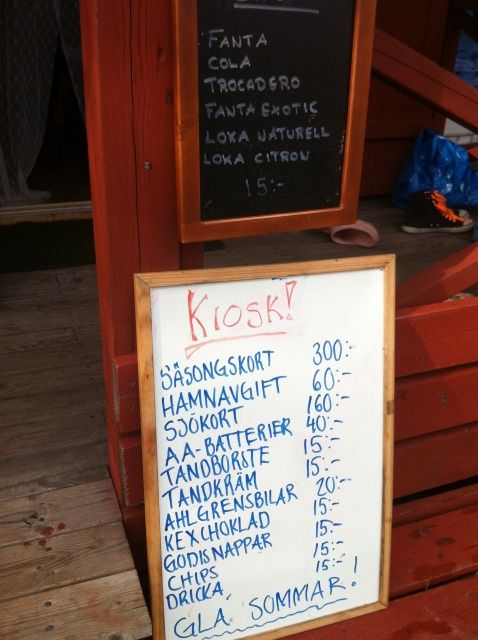 FANTA
COLA
TROCADERO
FANTA EXOTIC
LOKA NATURELL
LOKA CITRON
15:-
KIOSK!
SÄSONGSKORT 300:-
HAMNAVGIFT 60:-
SJÖKORT 160:-
AA-BATTERIER 40:-
TANDBORSTE 15:-
TANDKRÄM 15:-
AHLGRENSBILAR 20:-
KEXCHOKLAD 15:-
GODISNAPPAR 15:-
CHIPS 15:-
DRICKA 15:-
GLA. SOMMAR!